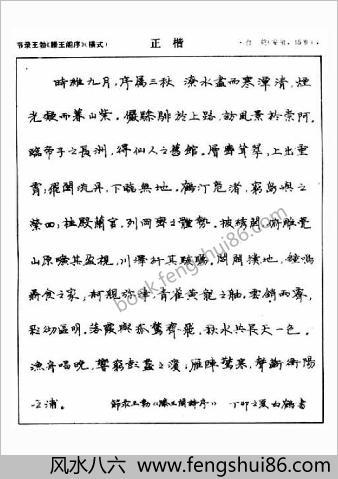 节录王勃《滕王阁序》(横式)
正楷
时维九月，序属三秋 潦水盡而寒潭清，煙
光凝而暮山紫。儼驂騑於上路，訪風景於崇阿。
臨帝子之長洲，得仙人之舊館。層巒聳萃，上出重
霄；飛閣流丹，下臨無地。鶴汀凫渚，窮島嶼之
縈回；桂殿蘭宫，列岡巒之體勢。披绣闥，俯雕甍
山原曠其盈視，川澤纡其駭矚。閭閻撲地，鐘鳴
鼎食之家；舸艦弥津，青雀黄龍之舳。雲銷雨霽，
彩彻區明。落霞與孤鶩齊飛，秋水共長天一色。
漁舟唱晚，響窮彭蠡之濱；雁陣驚寒，聲斷衡陽
之浦。 節录王勃《滕王閣詩序》 丁卯之夏 白鶴書
book.fengshui86.com
风水八六 www.fengshui86.com